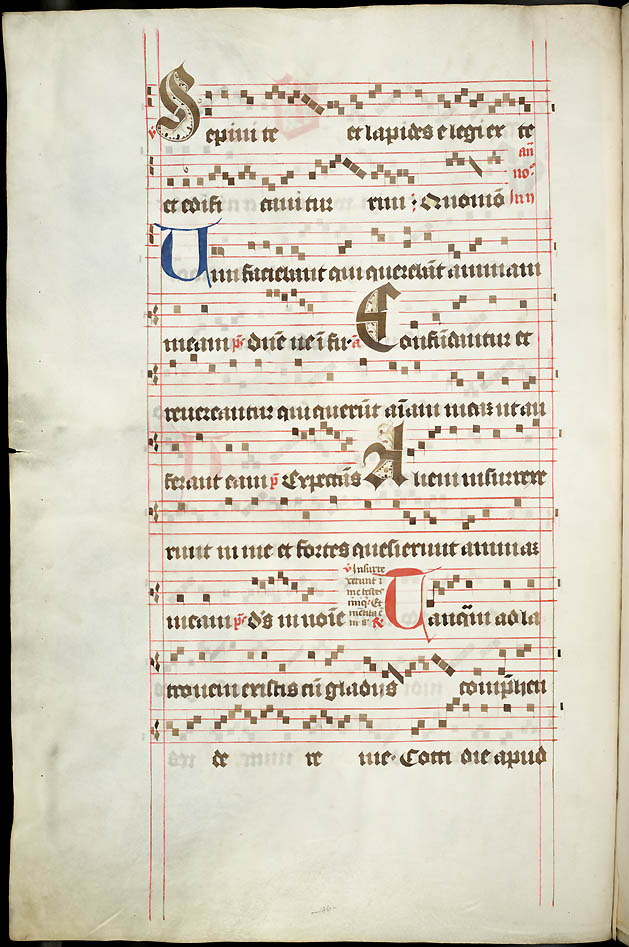 ℣ Sepiui te et lapides elegi ex te
et edifi caui tur rim : Quomō
añ
no⁹
Inn
Uim faciebant qui querebāt animam
meam p̄s Dn̄e ne ī fu · a Confūdantur et
reuereantur qui querūt aīam meaꝫ ut au
ferant eam p̄s Expectās Alieni insurrexe
runt in me et fortes quesierunt animaꝫ
meam p̄s ds̄ in noīe
℣ Insurre
xerunt ī
me testes
iniq̄ · Et
mētita ē
in s · ℟
Tanq̄m ad la
tronem existis cū gladijs comp̄hen
de re me · Cotti die apud
136